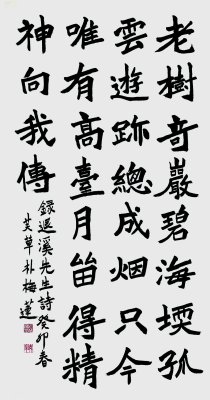 老樹奇巖碧海堧孤
雲遊跡總成烟只今
唯有高臺月留得精
神向我傳
錄退溪先生詩癸卯春
艾草朴梅蓮